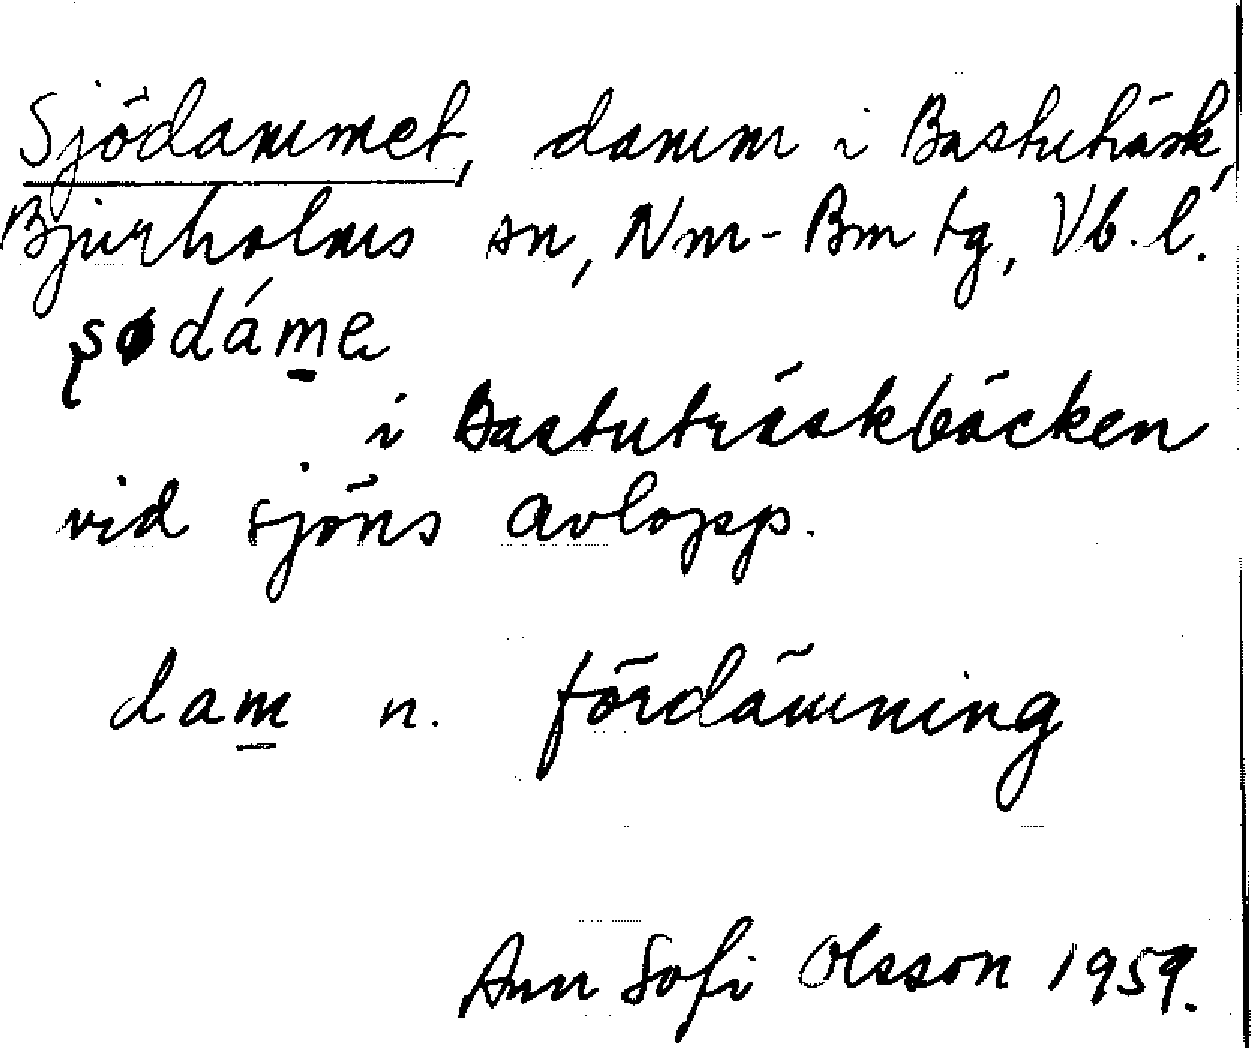 Sjödammet, damm i Bastuträsk,
Bjurholms sn, Nm-Bm tg, Vb. l.
ʂødám̲e
i Bastuträskbäcken
vid sjöns avlopp.
dam̲ n. fördämning
Ann Sofi Olsson 1959.